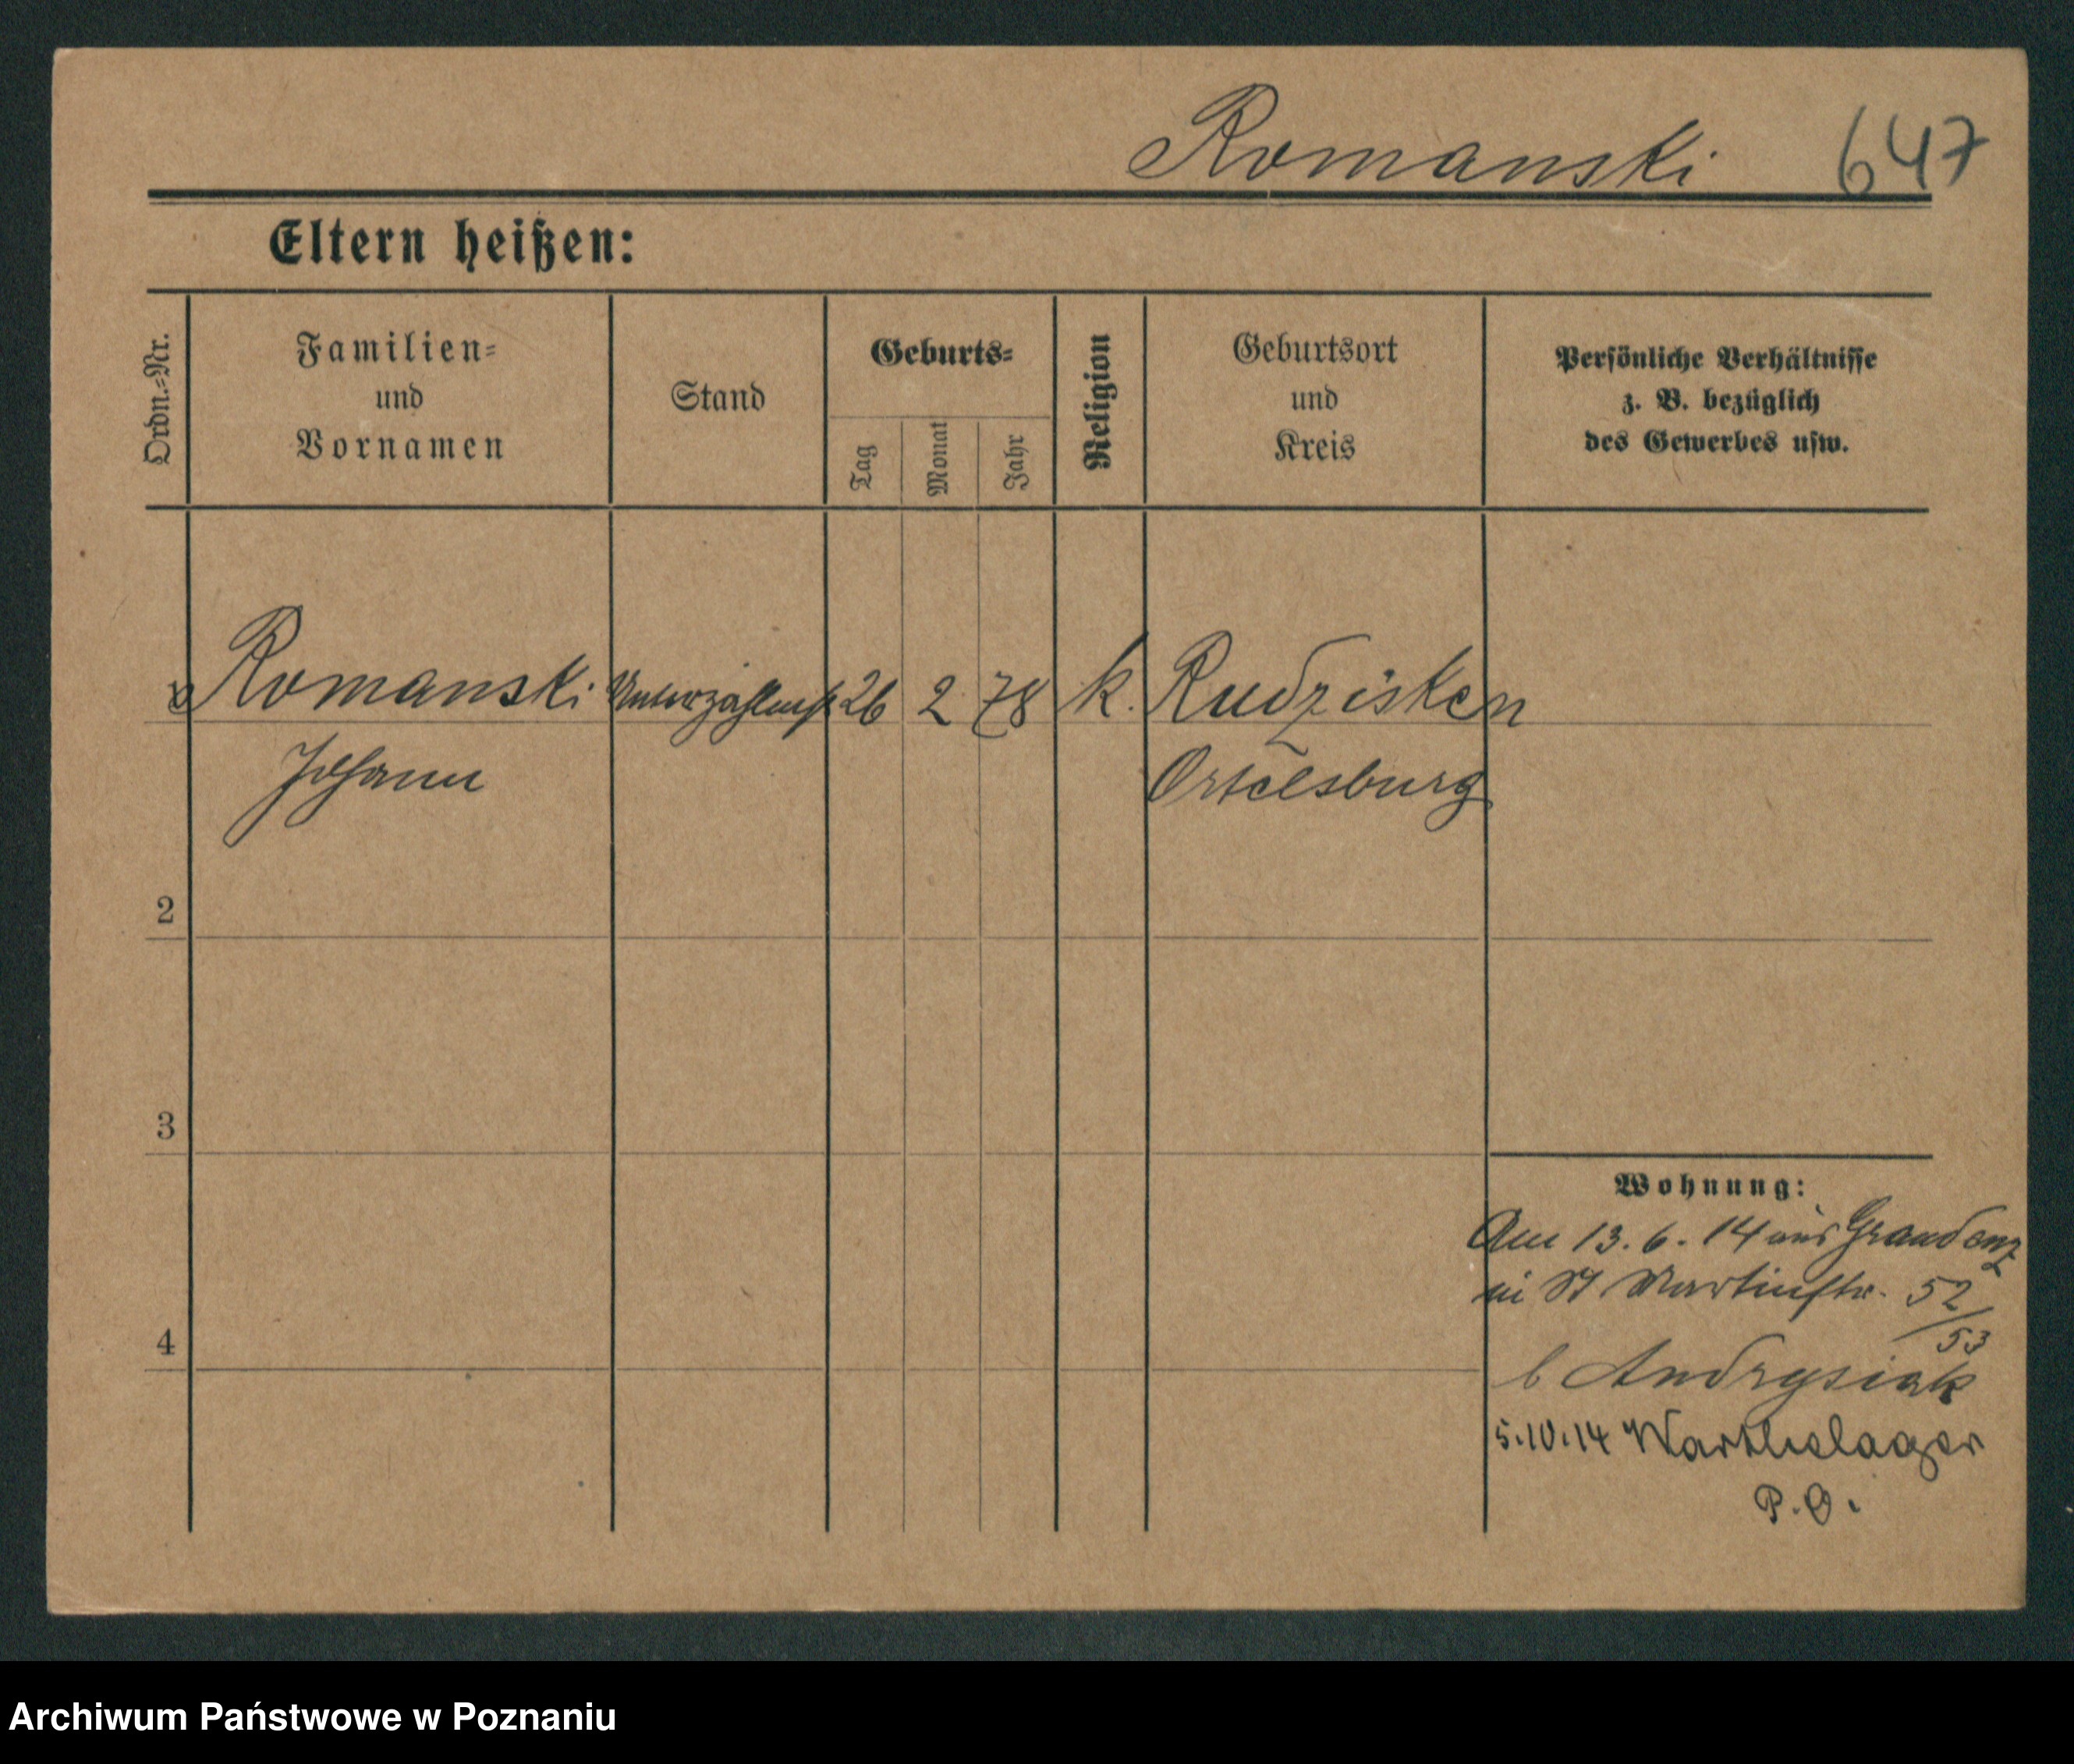 Romanski 647
Eltern heißen:
Ordn.-Nr.
Familien-
und
Vornamen
Stand
Geburts-
Tag
Monat
Jahr
Religion
Geburtsort
und
Kreis
Persönliche Verhältnisse
z. B. bezüglich
des Gewerbes usw.
Romanski Unterzahlmstr 26 2 78 k. Rudzisken
Johann Ortelsburg
2
3
Wohnung:
Am 13.6.14 aus Graudenz
in St Martinstr. 52/53
4
b Andrysiak
5.10.14 Warthelager
P.O.
Archiwum Państwowe w Poznaniu